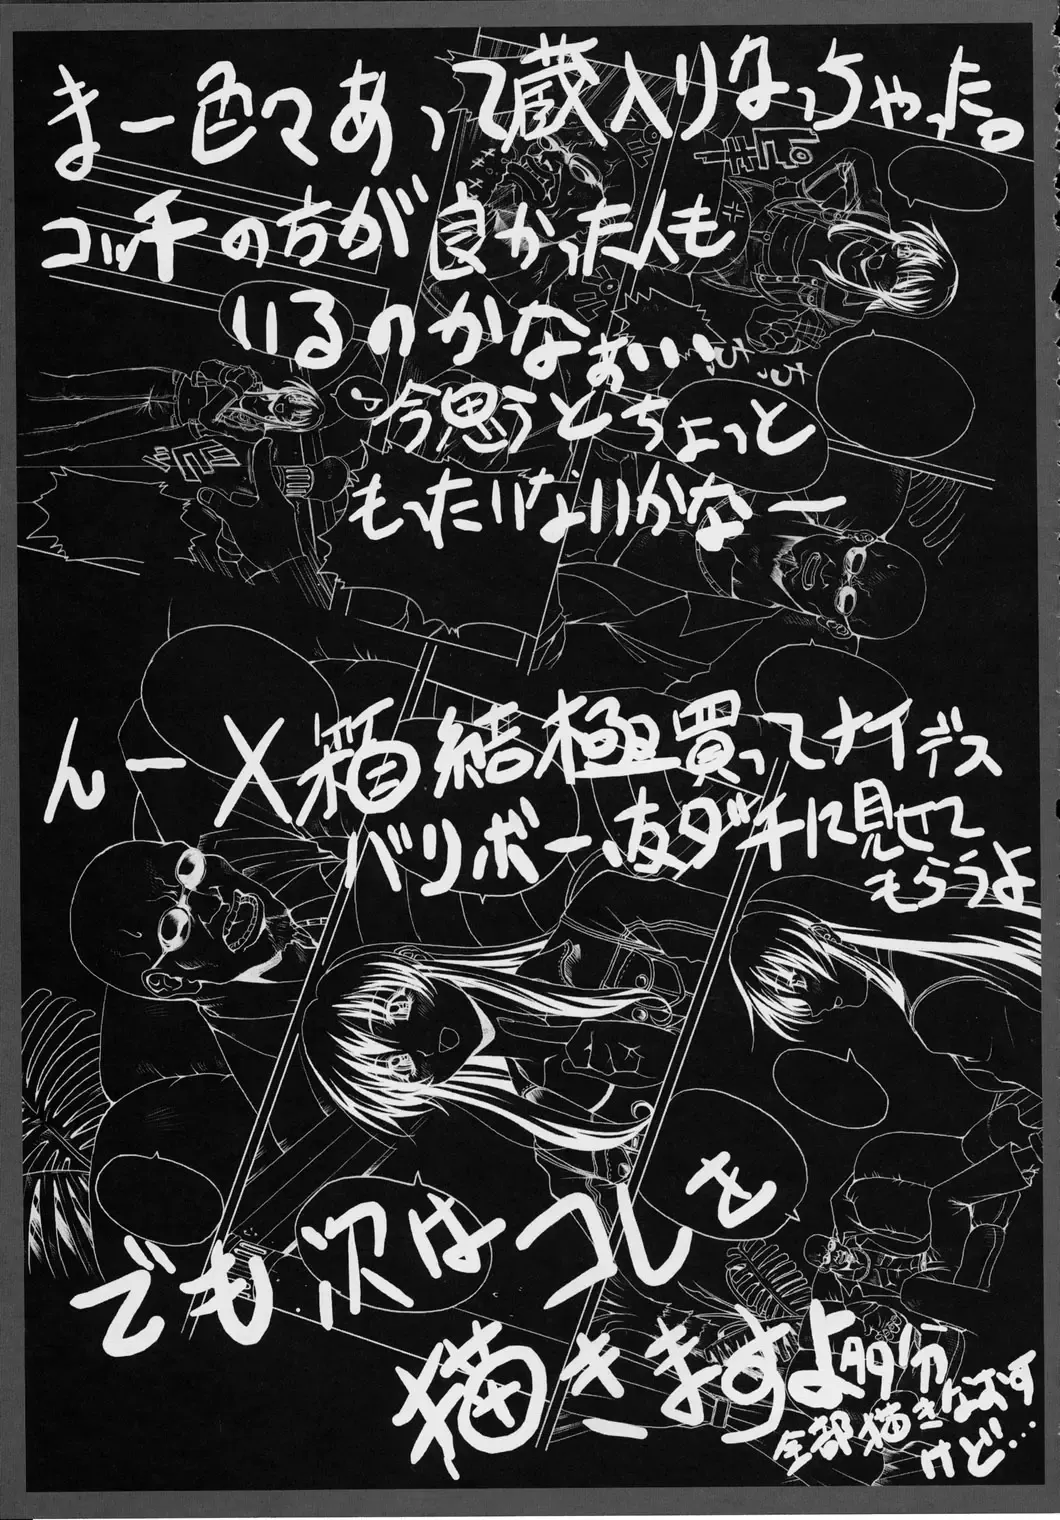 まー色々あって蔵入りなっちゃった。
コッチの方が良かった人も
いるのかなぁ…
今思うとちょっと
もったいないかなー
んー X箱結極買ってナイデス
バリボー、友ダチに見せて
もらうよ
でも次はコレを
描きますよ多分
全部描きなおす
けど…